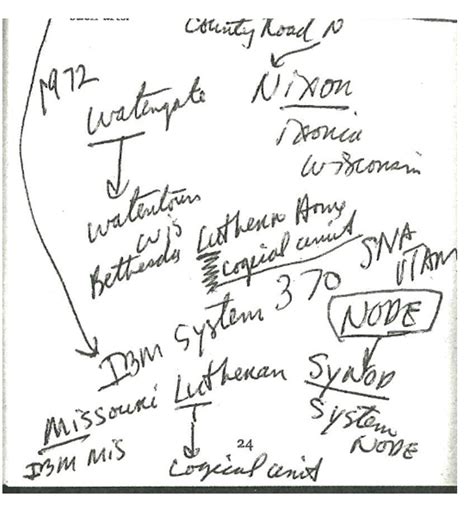 County Road N
1972
Watergate
Nixon
Ixonia
Wisconsin
Watertown
Wis
Bethesda Lutheran Home
Logical unit
SNA
VTAM
IBM System 370
NODE
Missouri Lutheran Synod
IBM MIS
System
NODE
24
Logical unit